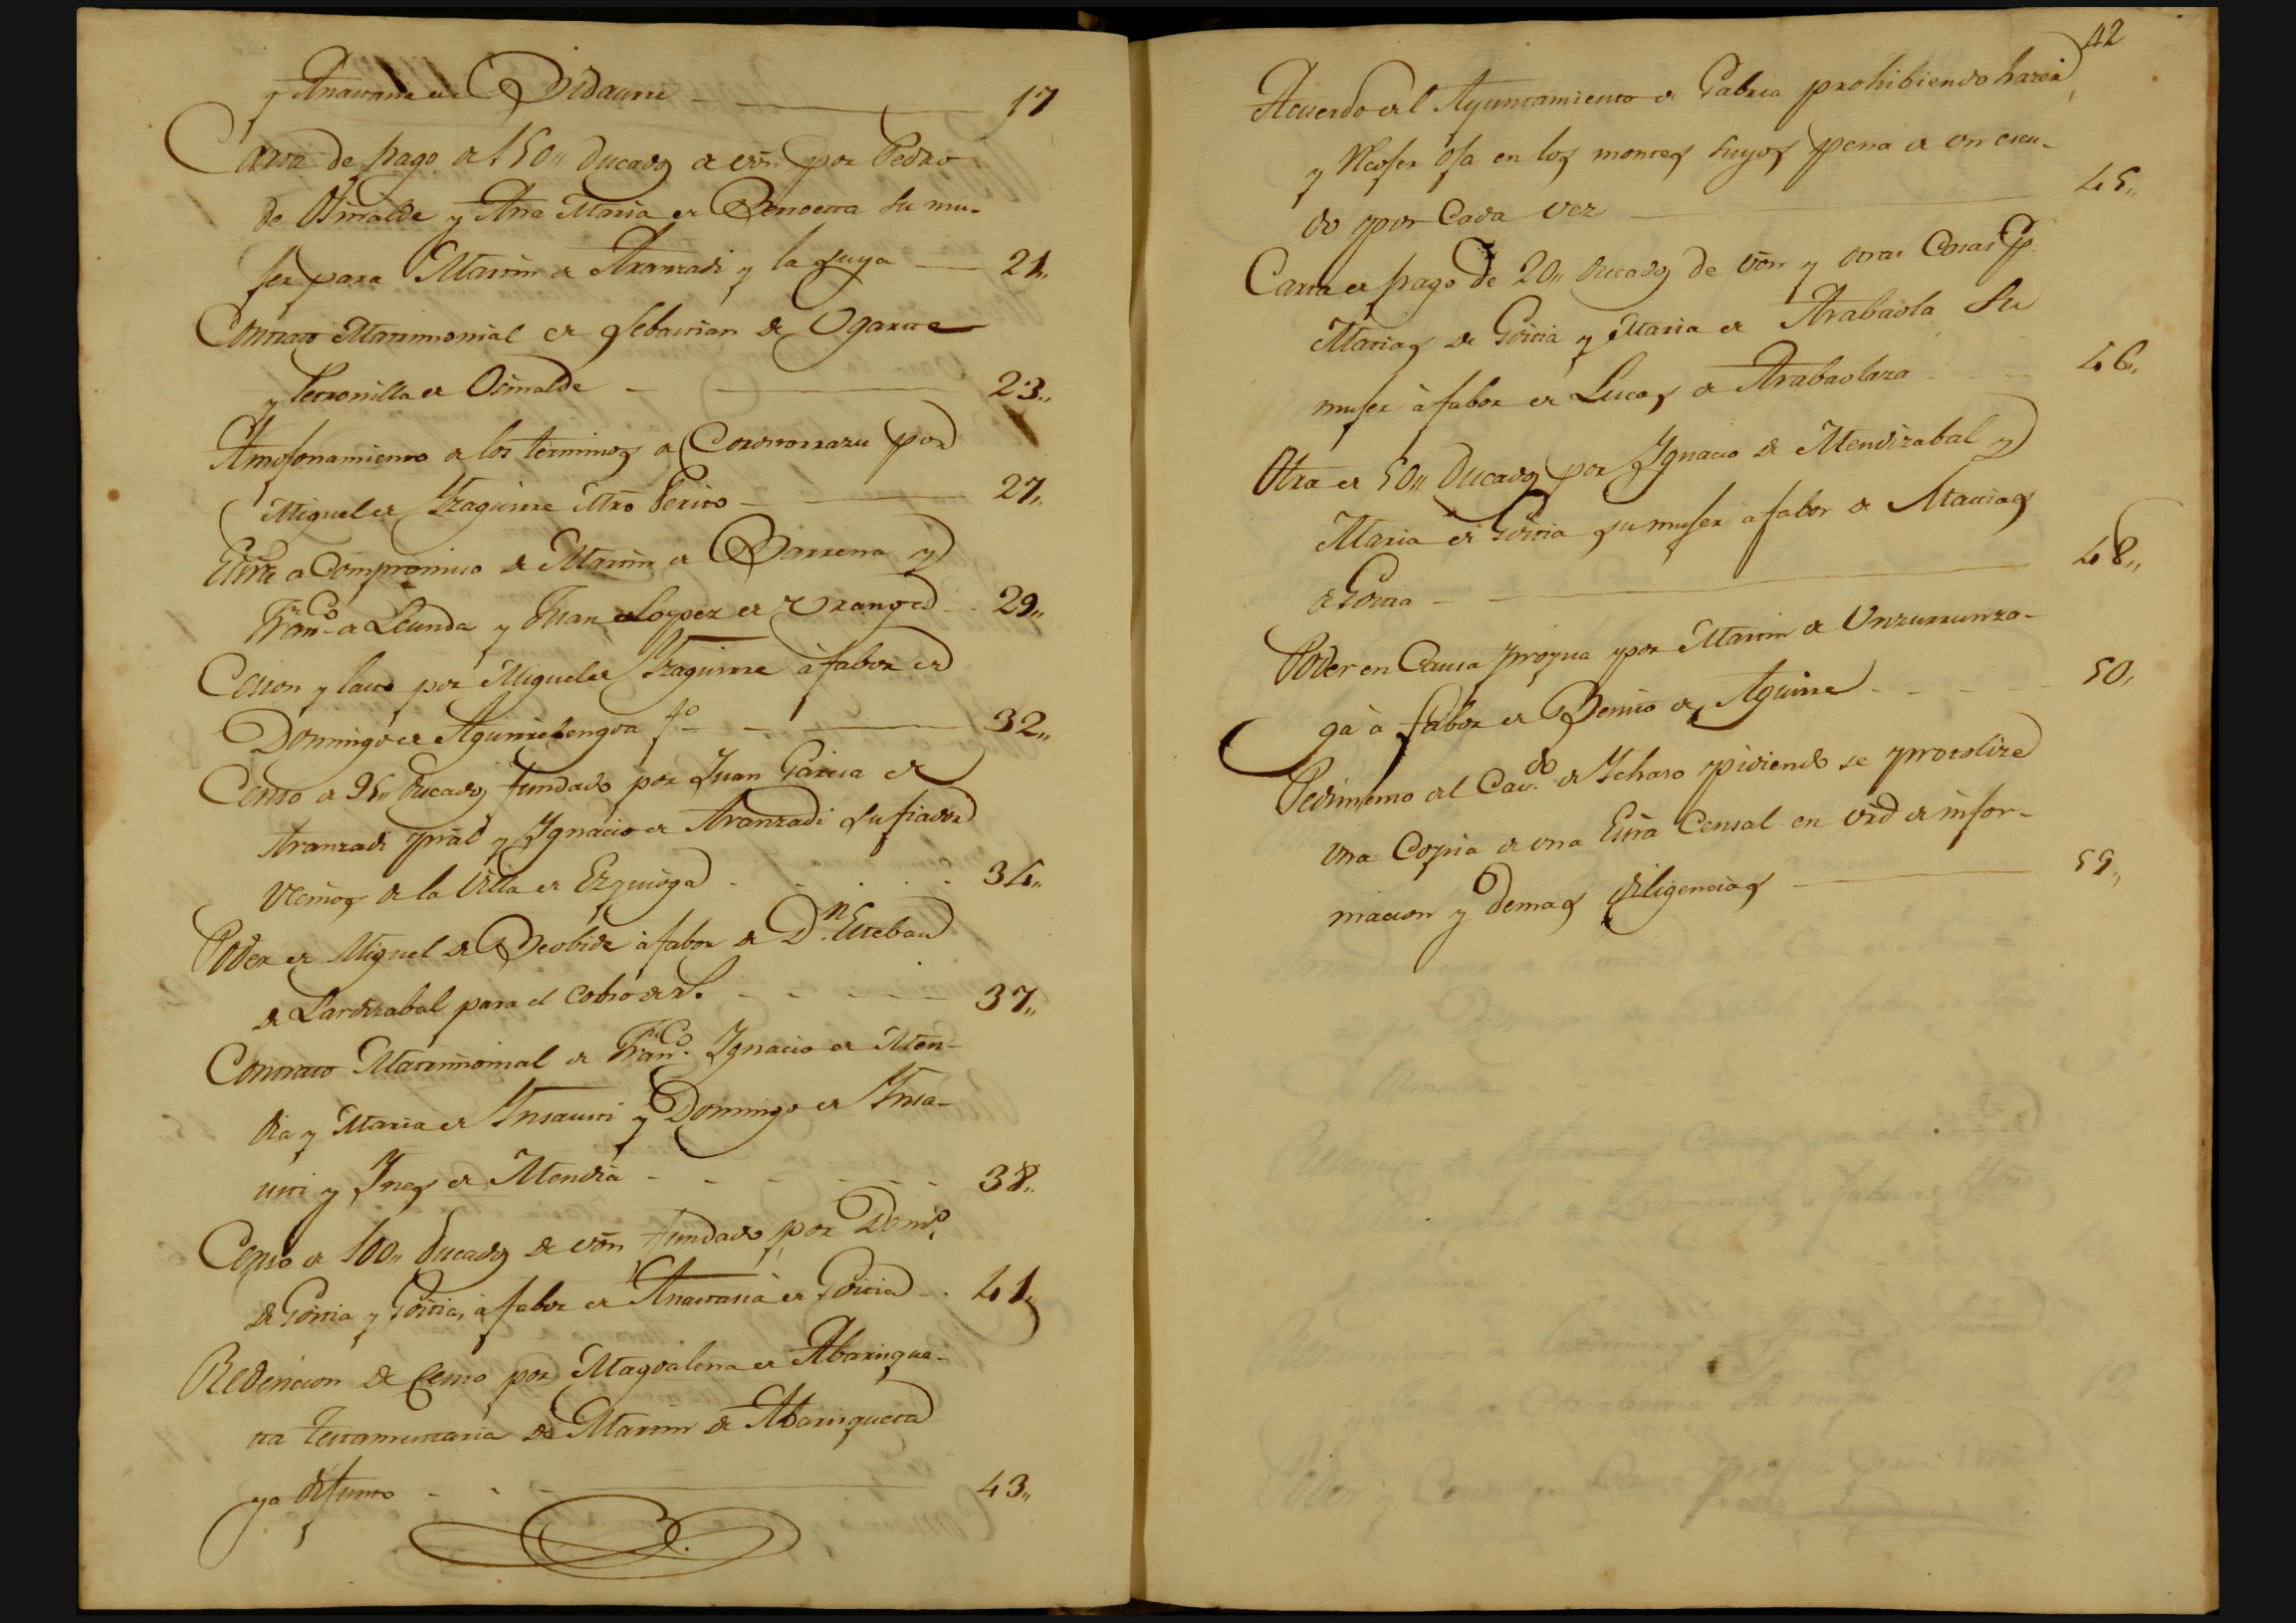 y Anamaria de Bidaurre 17
Carta de pago de 150,, Ducados de vōn por Pedro
de Osinalde y Ana Maria de Bengoeta su mu-
jer para Martin de Aranzadi y la suya 21,,
Contrato Matrimonial de Sebastian de Ogarte
y Petronilla de Osinalde 23,,
Amojonamiento de los terminos de por
Miguel de Yzaguirre Mro Perito 27,,
Escra de Compromiso de Martin de Barrena y
Franco de Leunda y Juan Lopez de Uranga 29,,
Cesion y lasto por Miguel de Yzaguirre à fabor de
Domingo de Aguirrelengoa fo 32,,
Censo de 95,, Ducados fundado por Juan Garcia de
Aranzadi pral y Ygnacio de Aranzadi su fiador
vecinos de la Villa de Ezquioga 34,,
Poder de Miguel de Beobide à fabor de Dn. Esteban
de Lardizabal para el cobro de 37,,
Contrato Matrimonial de Franco. Ygnacio de Men-
dia y Maria de Ynsausti y Domingo de Ynsa-
usti y Ynes de Mendia 38,,
Censo de 100,, Ducados de vōn fundado por Domo.
de Goitia y Goitia, à fabor de Anamaria de Goitia 41,,
Redencion de Censo por Magdalena de Abarisque-
ta testamentaria de Martin de Abarisqueta
ya difunto 43,,
42
Acuerdo del Ayuntamiento de Gabiria prohibiendo hazer
y Recojer oja en los montes suyos pena de un escu-
do por Cada vez 45,,
Carta de pago de 20,, Ducados de vōn y otras Cosas Pr.
Matias de Goitia y Maria de Arabaola su
mujer à fabor de Lucas de Arabaolaza 46,,
Otra de 50,, Ducados por Ygnacio de Mendizabal y
Maria de Goitia su mujer à fabor de Matias
de Goitia 48,,
Poder en Causa propia por Martin de Unzurrunza-
ga à fabor de Benito de Aguirre 50,
Pedimento del Cavdo. de Ychaso pidiendo se protolize
una Copia de una Escra Censal en vrd de infor-
macion y demas diligencias 55,,